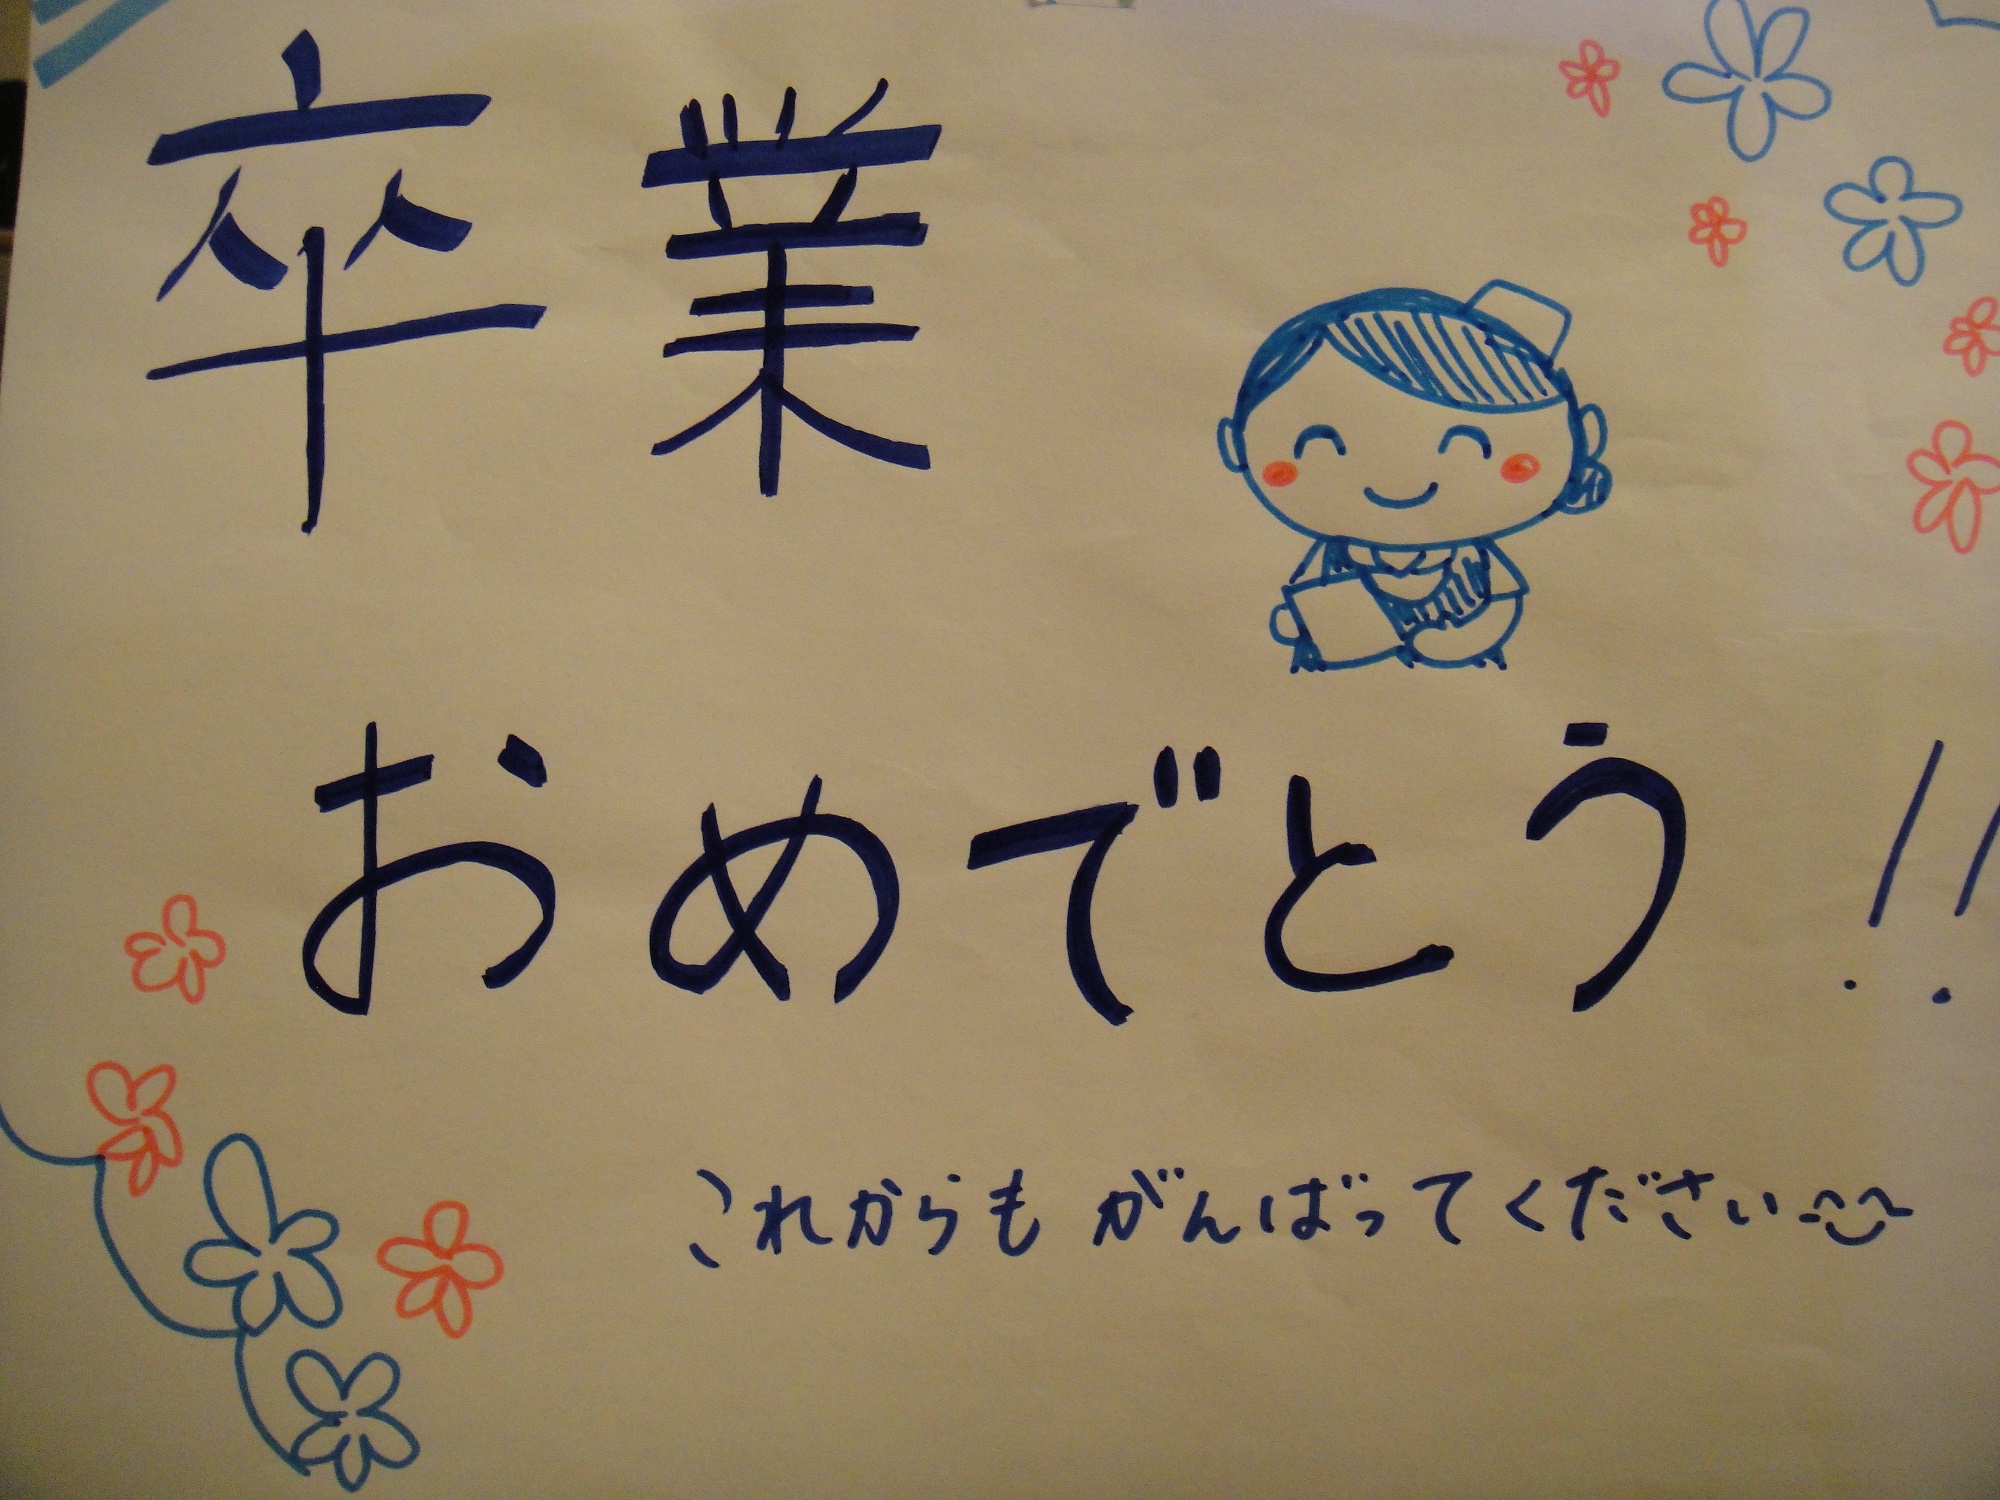 卒業
おめでとう!!
これからもがんばってください